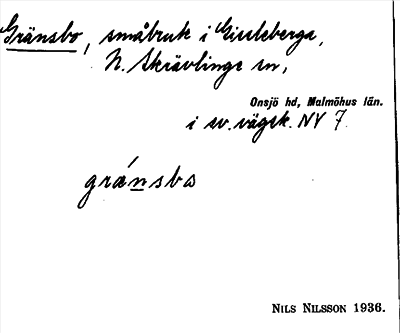 Gränsbo, småbruk i Gisseleberga,
N. Skrävlinge sn,
Onsjö hd, Malmöhus län.
i sv. vägsk. NV 7.
grá̱nsbo
NILS NILSSON 1936.